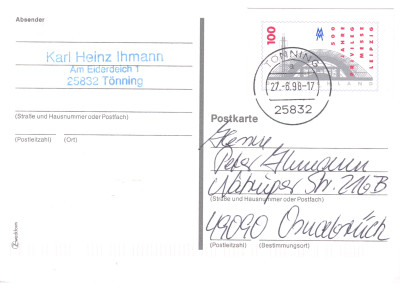 Absender
Karl Heinz Ihmann
Am Eiderdeich 1
25832 Tönning
(Straße und Hausnummer oder Postfach)
(Postleitzahl) (Ort)
100
500 JAHRE
PRIVILEG
MESSE
LEIPZIG
TÖNNING
a
27.-6.98-17
25832
Postkarte
Herrn
Peter
Natruper Str. 216B
(Straße und Hausnummer oder Postfach)
49090 Osnabrück
(Postleitzahl) (Bestimmungsort)